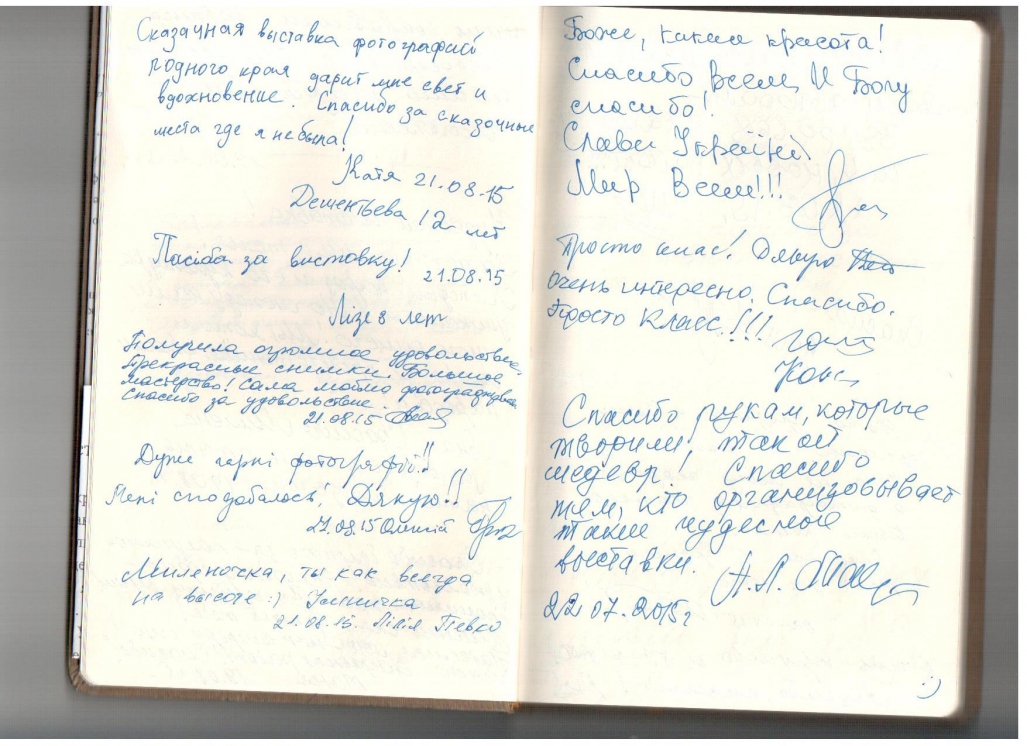 Сказачная выставка фотографий
родного края дарит мне свет и
вдохновение. Спасибо за сказочные
места где я не была!
Катя 21.08.15
Дементьева 12 лет
Пасіба за виставку!
21.08.15
Лізе 8 лет
Получила огромное удовольствие.
Прекрасные снимки. Большое
мастерство! Сама люблю
Спасибо за удовольствие.
21.08.15
Дуже гарні фотографії!!
Мені сподобалось! Дякую!!
21.08.15
Миленочка, ты как всегда
на высоте :) Умничка
21.08.15. Лілія Певко
Боже, какая красота!
Спасибо Всем И Богу
спасибо!
Слава Україні
Мир Всем!!!
Просто клас! Дякую
очень интересно. Спасибо.
Просто класс!!!
Спасибо рукам, которые
творили, такой
шедевр! Спасибо
тем, кто организовывает
такие чудесные
выставки.
22 07.2015г
:)